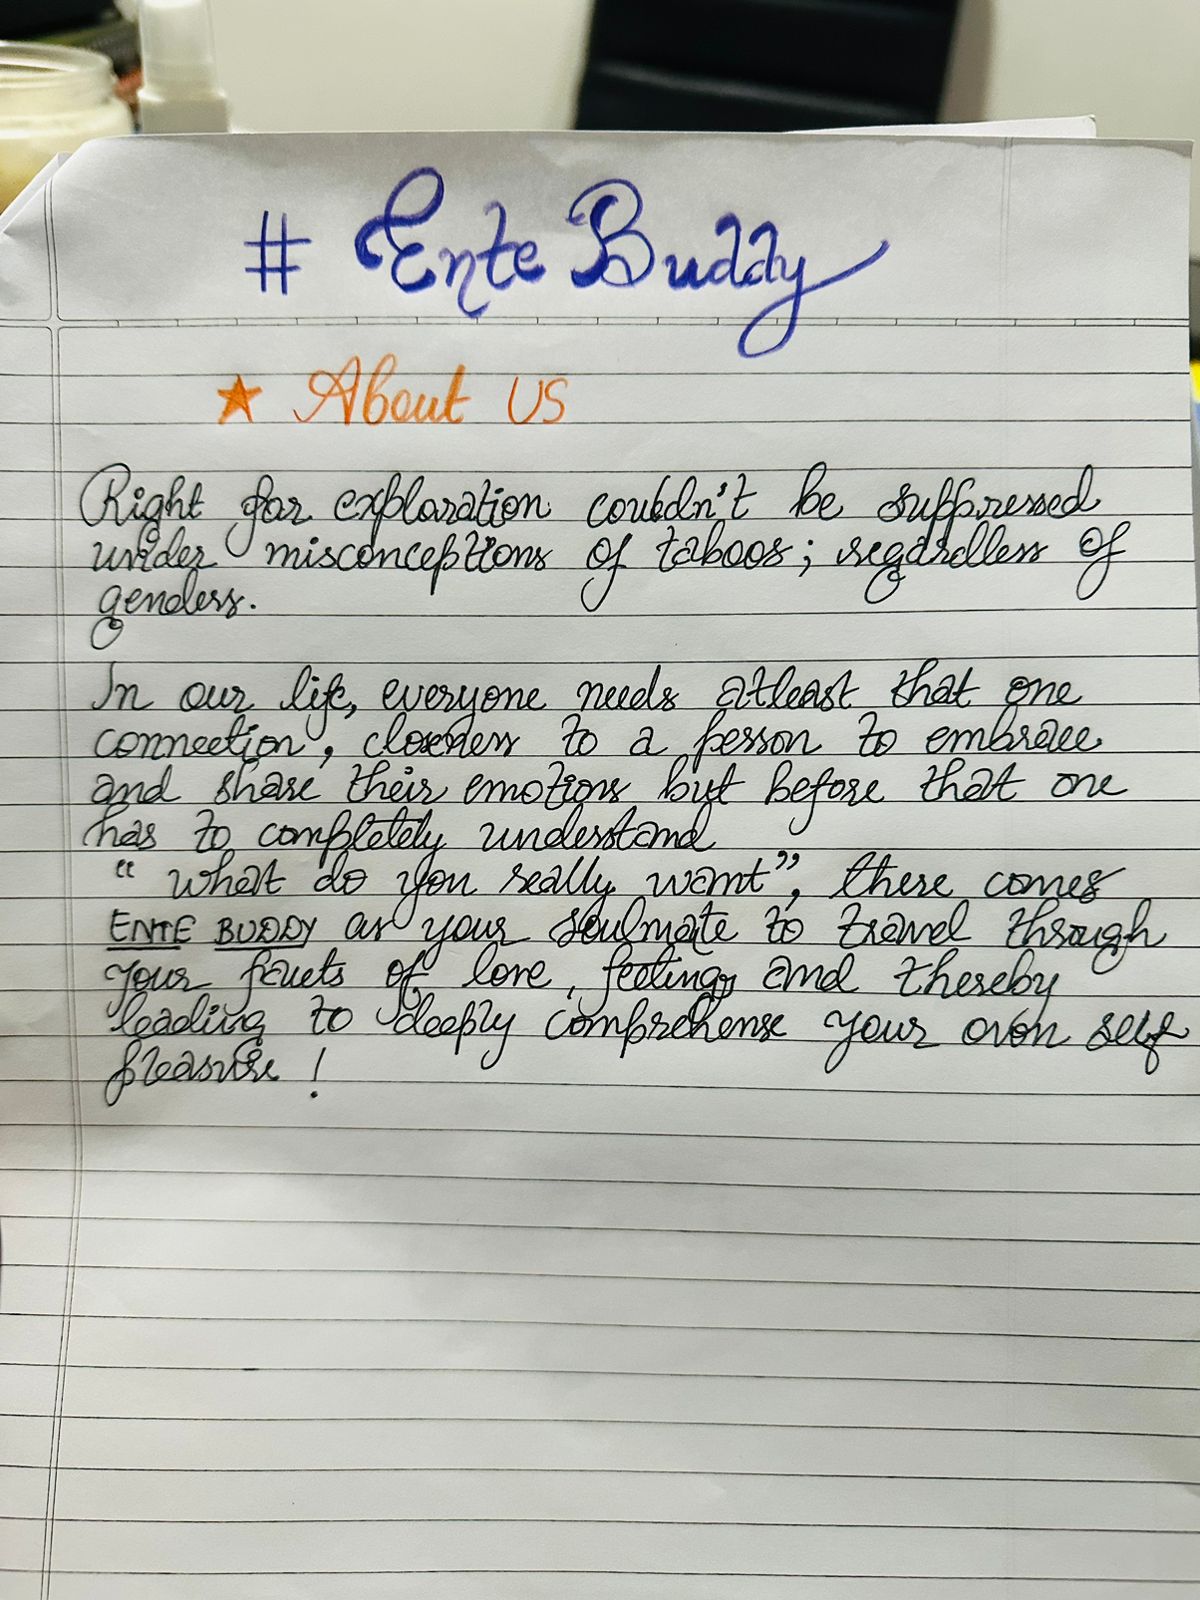 # Ente Buddy
★ About US
Right for exploration couldn't be suppressed
under misconceptions of taboos; regardless of
genders.
In our life, everyone needs atleast that one
connection, closeness to a person to embrace
and share their emotions but before that one
has to completely understand
"what do you really want", there comes
ENTE BUDDY as your soulmate to travel through
your facets of love, feelings and thereby
leading to deeply comprehense your own self
pleasure !